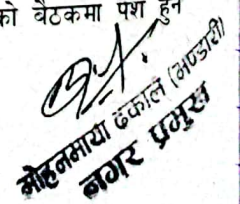 को बैठकमा पेश हुन
मोहनमाया ढकाल (भण्डारी)
नगर प्रमुख